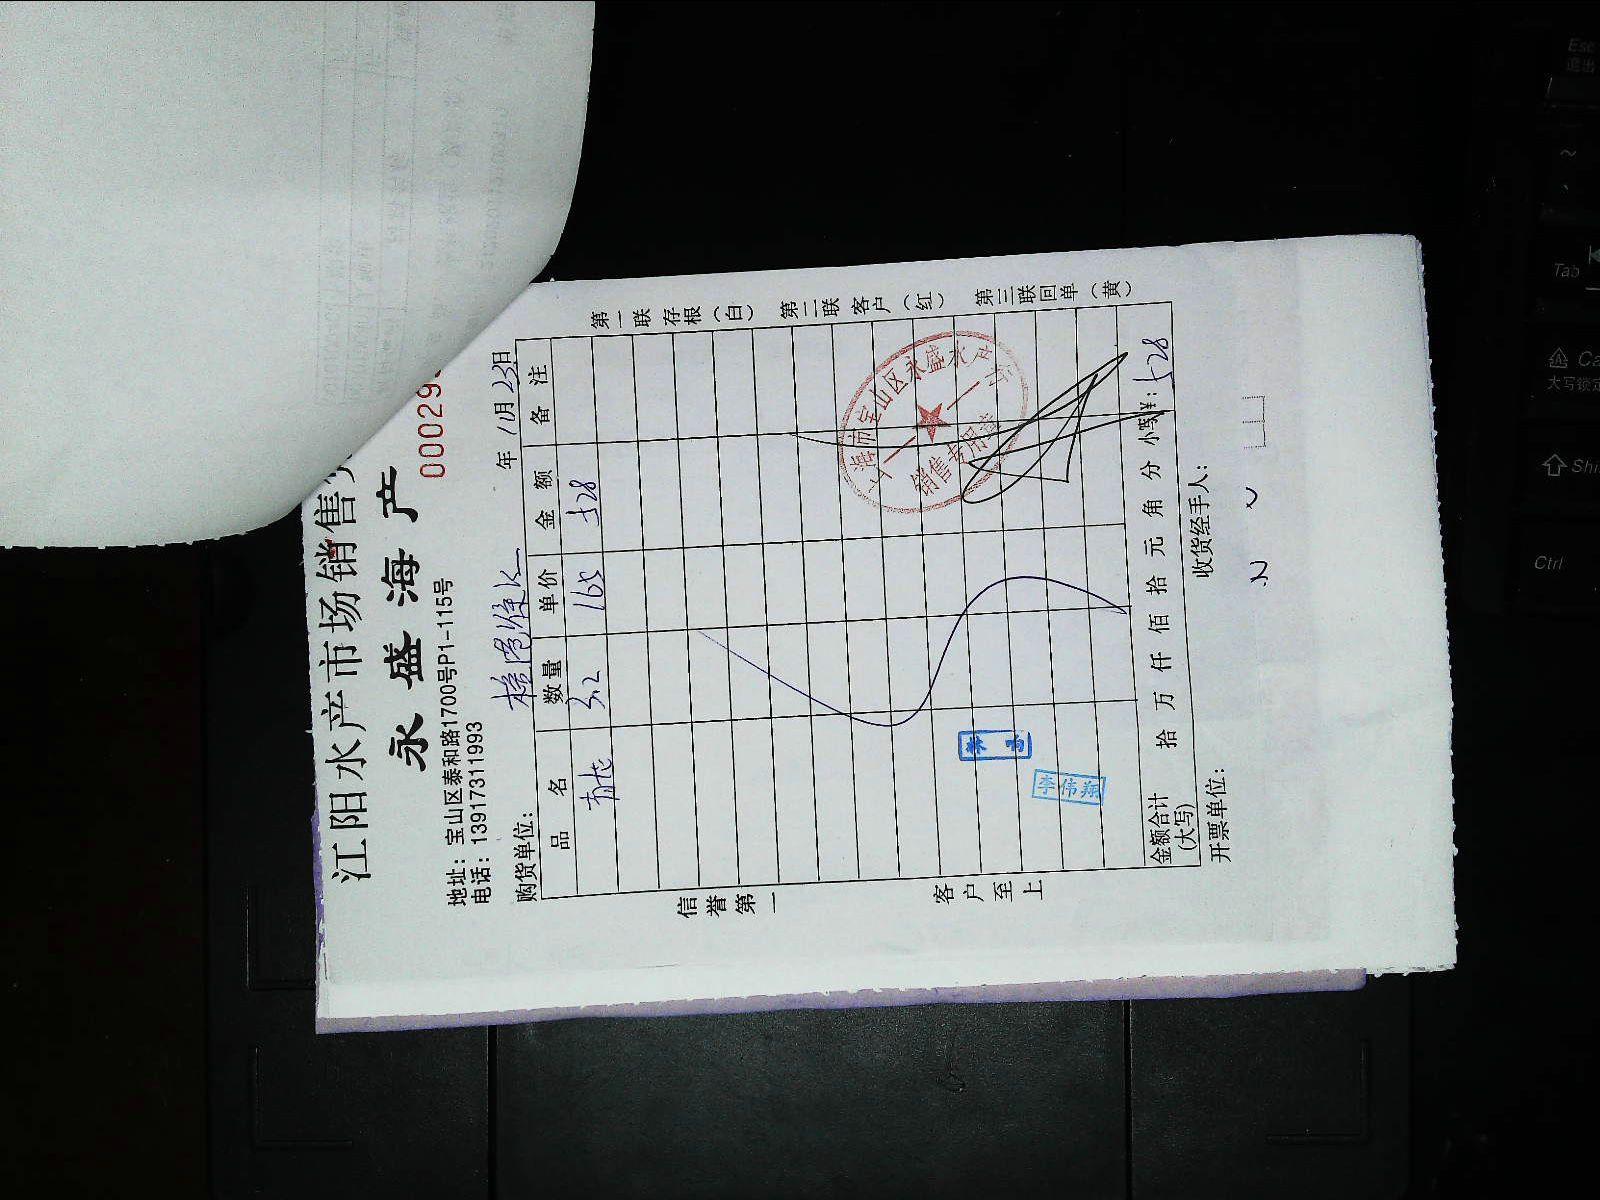 江阳水产市场销售
永盛海产
00029
地址：宝山区泰和路1700号P1-115号
电话：13917311993
购货单位：
年 11月 23日
品名 数量 单价 金额 备注
青龙 3.2 165 528
第一联存根（白） 第二联客户（红） 第三联回单（黄）
信誉第一 客户至上
上海市宝山区永盛水产行
销售专用章
李伟翔
金额合计（大写） 拾 万 仟 佰 拾 元 角 分 小写¥：528
开票单位： 收货经手人：
Esc
退出
Tab
Ca
大写锁定
Shi
Ctrl